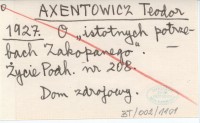 AXENTOWICZ Teodor
1927. O „istotnych potrze-
bach Zakopanego". –
Życie Podh. nr 208.
Dom zdrojowy.
BT/002/1101